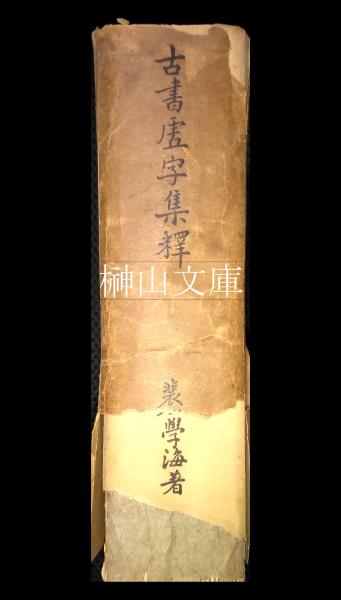 古書虛字集釋
榊山文庫
裴學海著